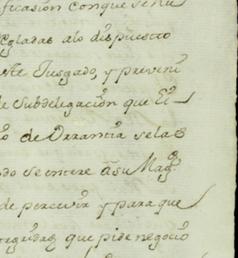 ficasion conque se hu
Coladas alo dispuesto
ste Jusgado, y preveni
de Subdelegacion que El
o de Verrantia selas
do se entere à su Mag.ᵈ
de percevir y para que
tegridad que pide negocio